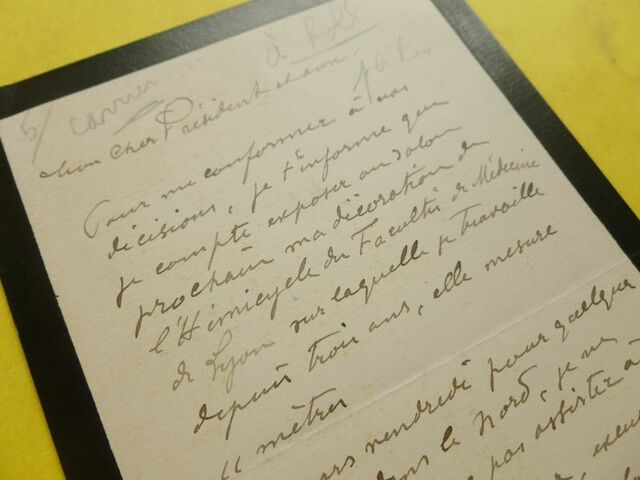 5/ carrier à Roll
fait
Mon cher Président et ami,
Pour me conformer à vos
décisions, je t'informe que
je compte exposer au salon
prochain ma décoration de
l'Hémicycle du Facultés de Médecine
de Lyon sur laquelle je travaille
depuis trois ans, elle mesure
11 mètres
vendredi pour quelque
dans le nord, je ne
pas assister à